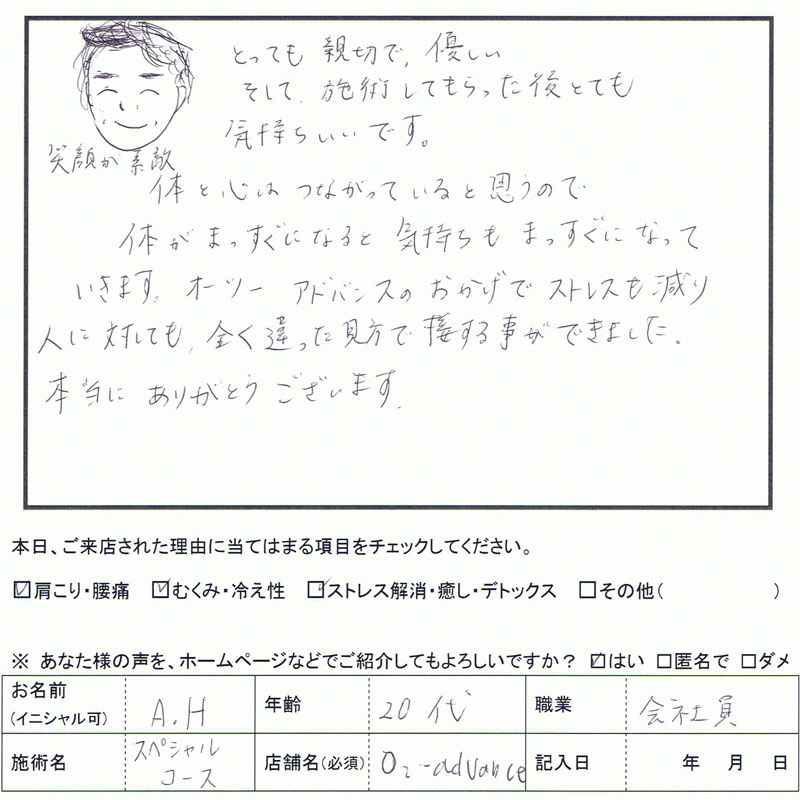 とっても 親切で、優しい
そして、施術してもらった後とても
気持ちいいです。
笑顔が素敵
体と心は つながっていると思うので
体がまっすぐになると 気持ちも まっすぐになって
いきます。オーツー アドバンスのおかげでストレスも減り
人に対しても、全く違った見方で接する事ができました。
本当に ありがとうございます。
本日、ご来店された理由に当てはまる項目をチェックしてください。
☑肩こり・腰痛 ☑むくみ・冷え性 ☑ストレス解消・癒し・デトックス □その他( )
※ あなた様の声を、ホームページなどでご紹介してもよろしいですか？ ☑はい □匿名で □ダメ
お名前
(イニシャル可)
A.H
年齢
20代
職業
会社員
施術名
スペシャル
コース
店舗名(必須)
O2-advance
記入日
年 月 日